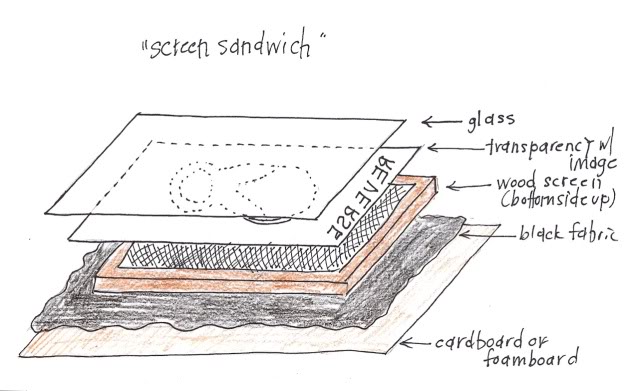 "screen sandwich"
glass
transparency w/
image
wood screen
(bottomside up)
black fabric
cardboard or
foamboard
REVERSE